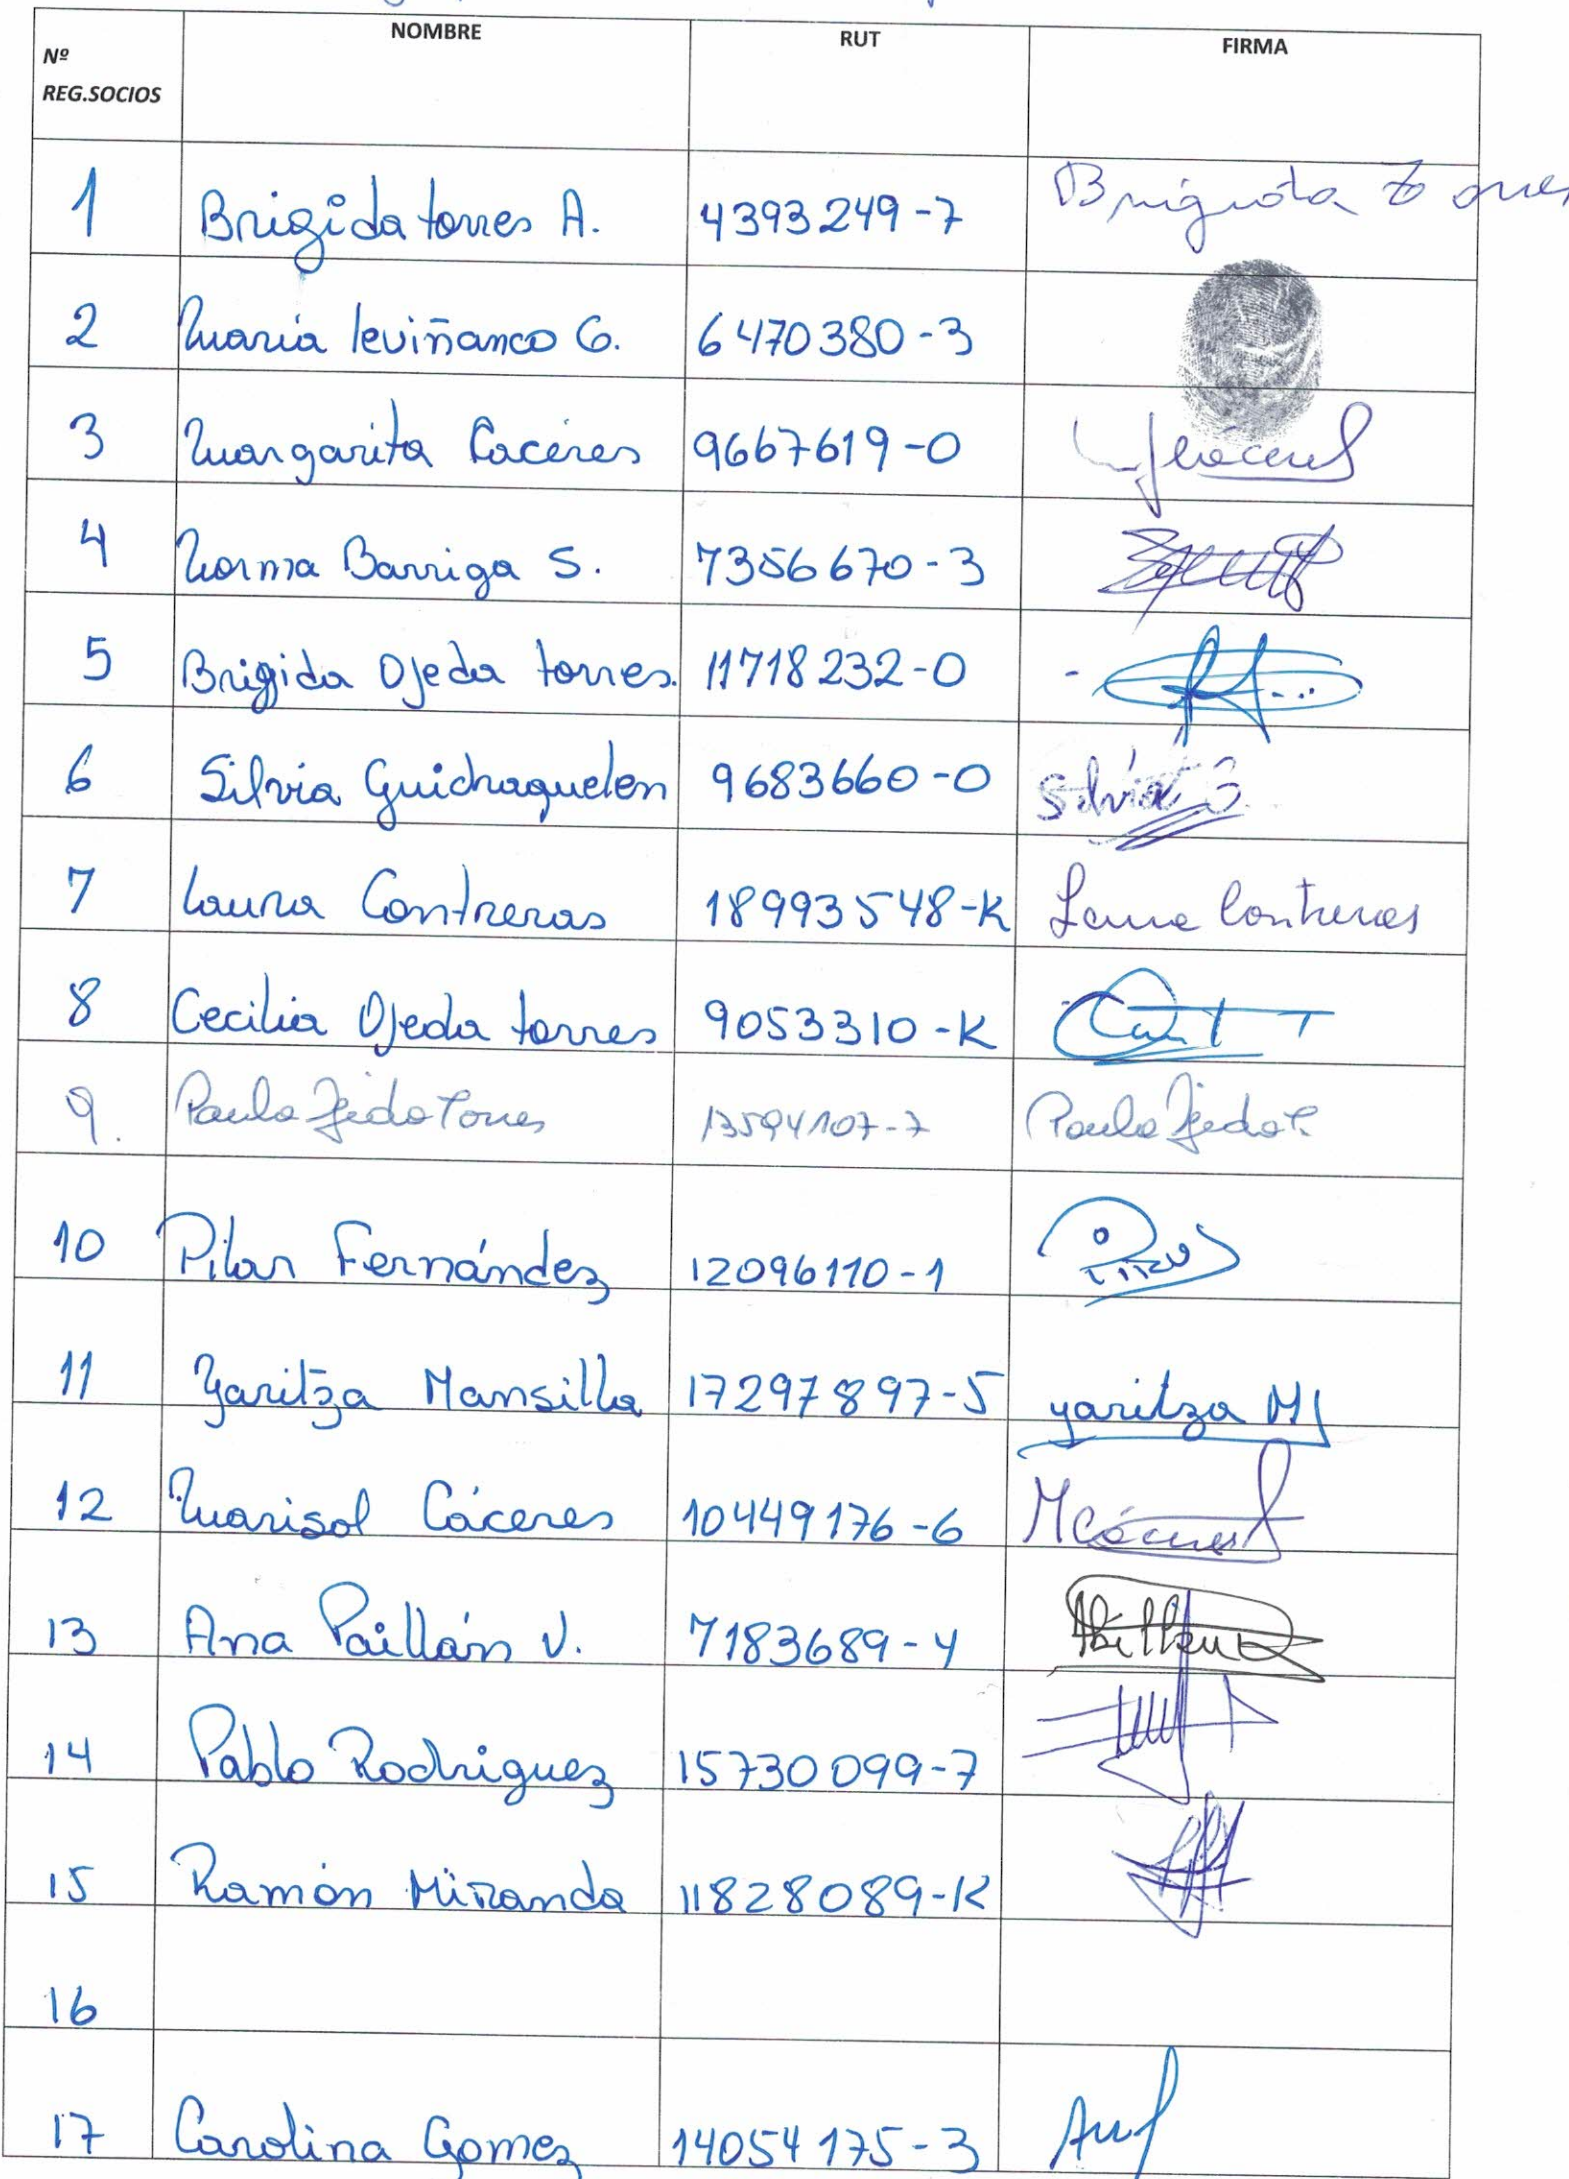 Nº REG.SOCIOS NOMBRE RUT FIRMA
1 Brigida torres A. 4393249-7 Brigida Torres
2 Maria leviñanco G. 6470380-3
3 Margarita Caceres 9667619-0
4 Norma Barriga S. 7356670-3
5 Brigida Ojeda torres. 11718232-0
6 Silvia Guichaquelen 9683660-0 Silvia G.
7 Laura Contreras 18993548-K Laura Contreras
8 Cecilia Ojeda torres 9053310-K
9. Paula Ojeda Torres 13594107-7 Paula Ojeda T.
10 Pilar Fernández 12096110-1
11 Yaritza Mansilla 17297897-5 yaritza M
12 Marisol Cáceres 10449176-6 MCáceres
13 Ana Paillán V. 7183689-4
14 Pablo Rodriguez 15730099-7
15 Ramón Miranda 11828089-K
16
17 Carolina Gomez 14054175-3